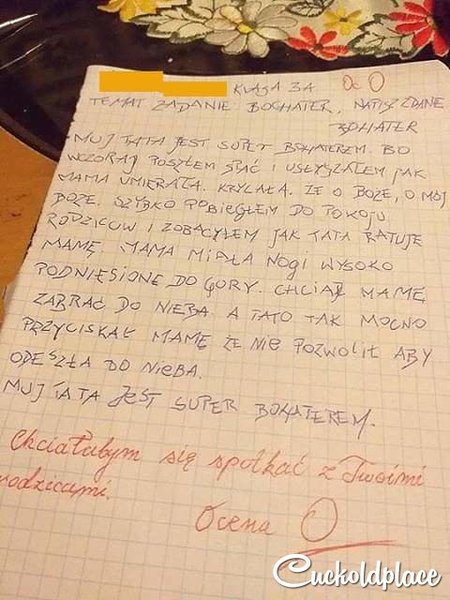 KLASA 3A Oc O
TEMAT ZADANIE BOCHATER, NAPISZ ZDANE
BOHATER
MUJ TATA JEST SUPER BOHATEREM. BO
WCZORAJ POSZŁEM SPAĆ I USŁYSZAŁEM JAK
MAMA UMIERAŁA. KRYCŁAŁA. ŻE O BOŻE, O MÓJ
BOŻE. SZYBKO POBIEGŁEM DO POKOJU
RODZICUW I ZOBACYŁEM JAK TATA RATUJE
MAMĘ. MAMA MIAŁA NOGI WYSOKO
PODNIESIONE DO GÓRY. CHCIAŁ MAMĘ
ZABRAĆ DO NIEBA. A TATO TAK MOCNO
PRZYCISKAŁ MAMĘ ŻE NIE POZWOLIŁ ABY
ODESZŁA DO NIEBA.
MUJ TATA JEST SUPER BOHATEREM.
Chciałabym się spotkać z Twoimi
rodzicami.
Ocena O
Cuckoldplace